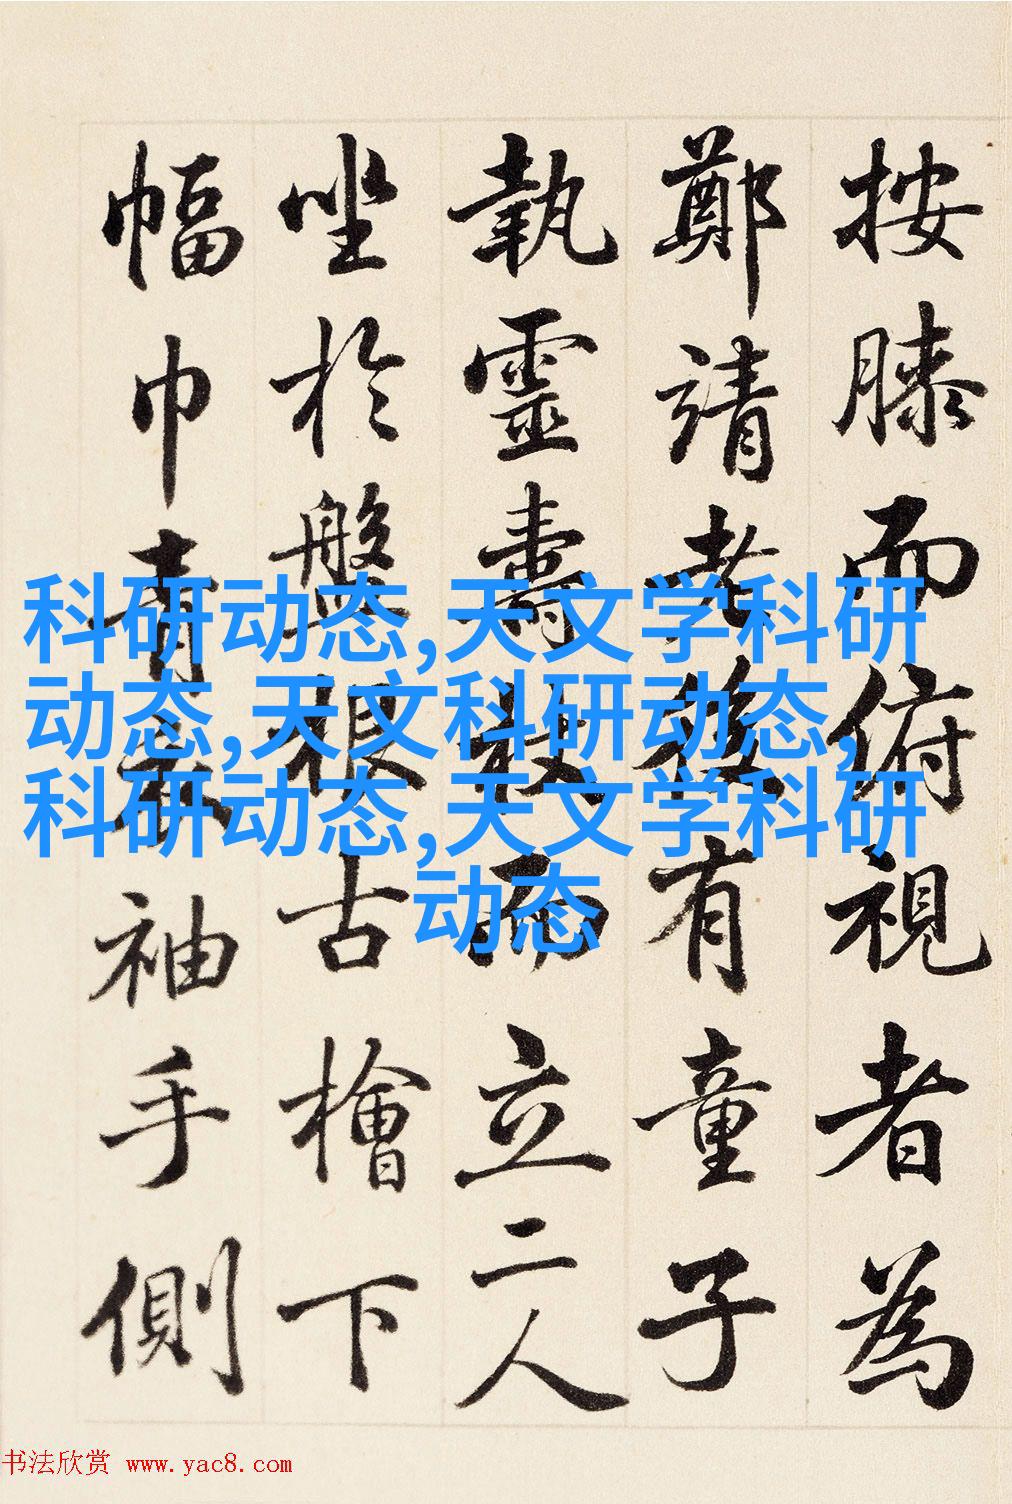 按膝而俯視者為
鄭靖老後有童子
執靈壽杖而立二人
坐於盤根古檜下
幅巾青衣袖手側
科研动态,天文学科研
动态,天文科研动态,
科研动态,天文学科研
动态
书法欣赏 www.yac8.com